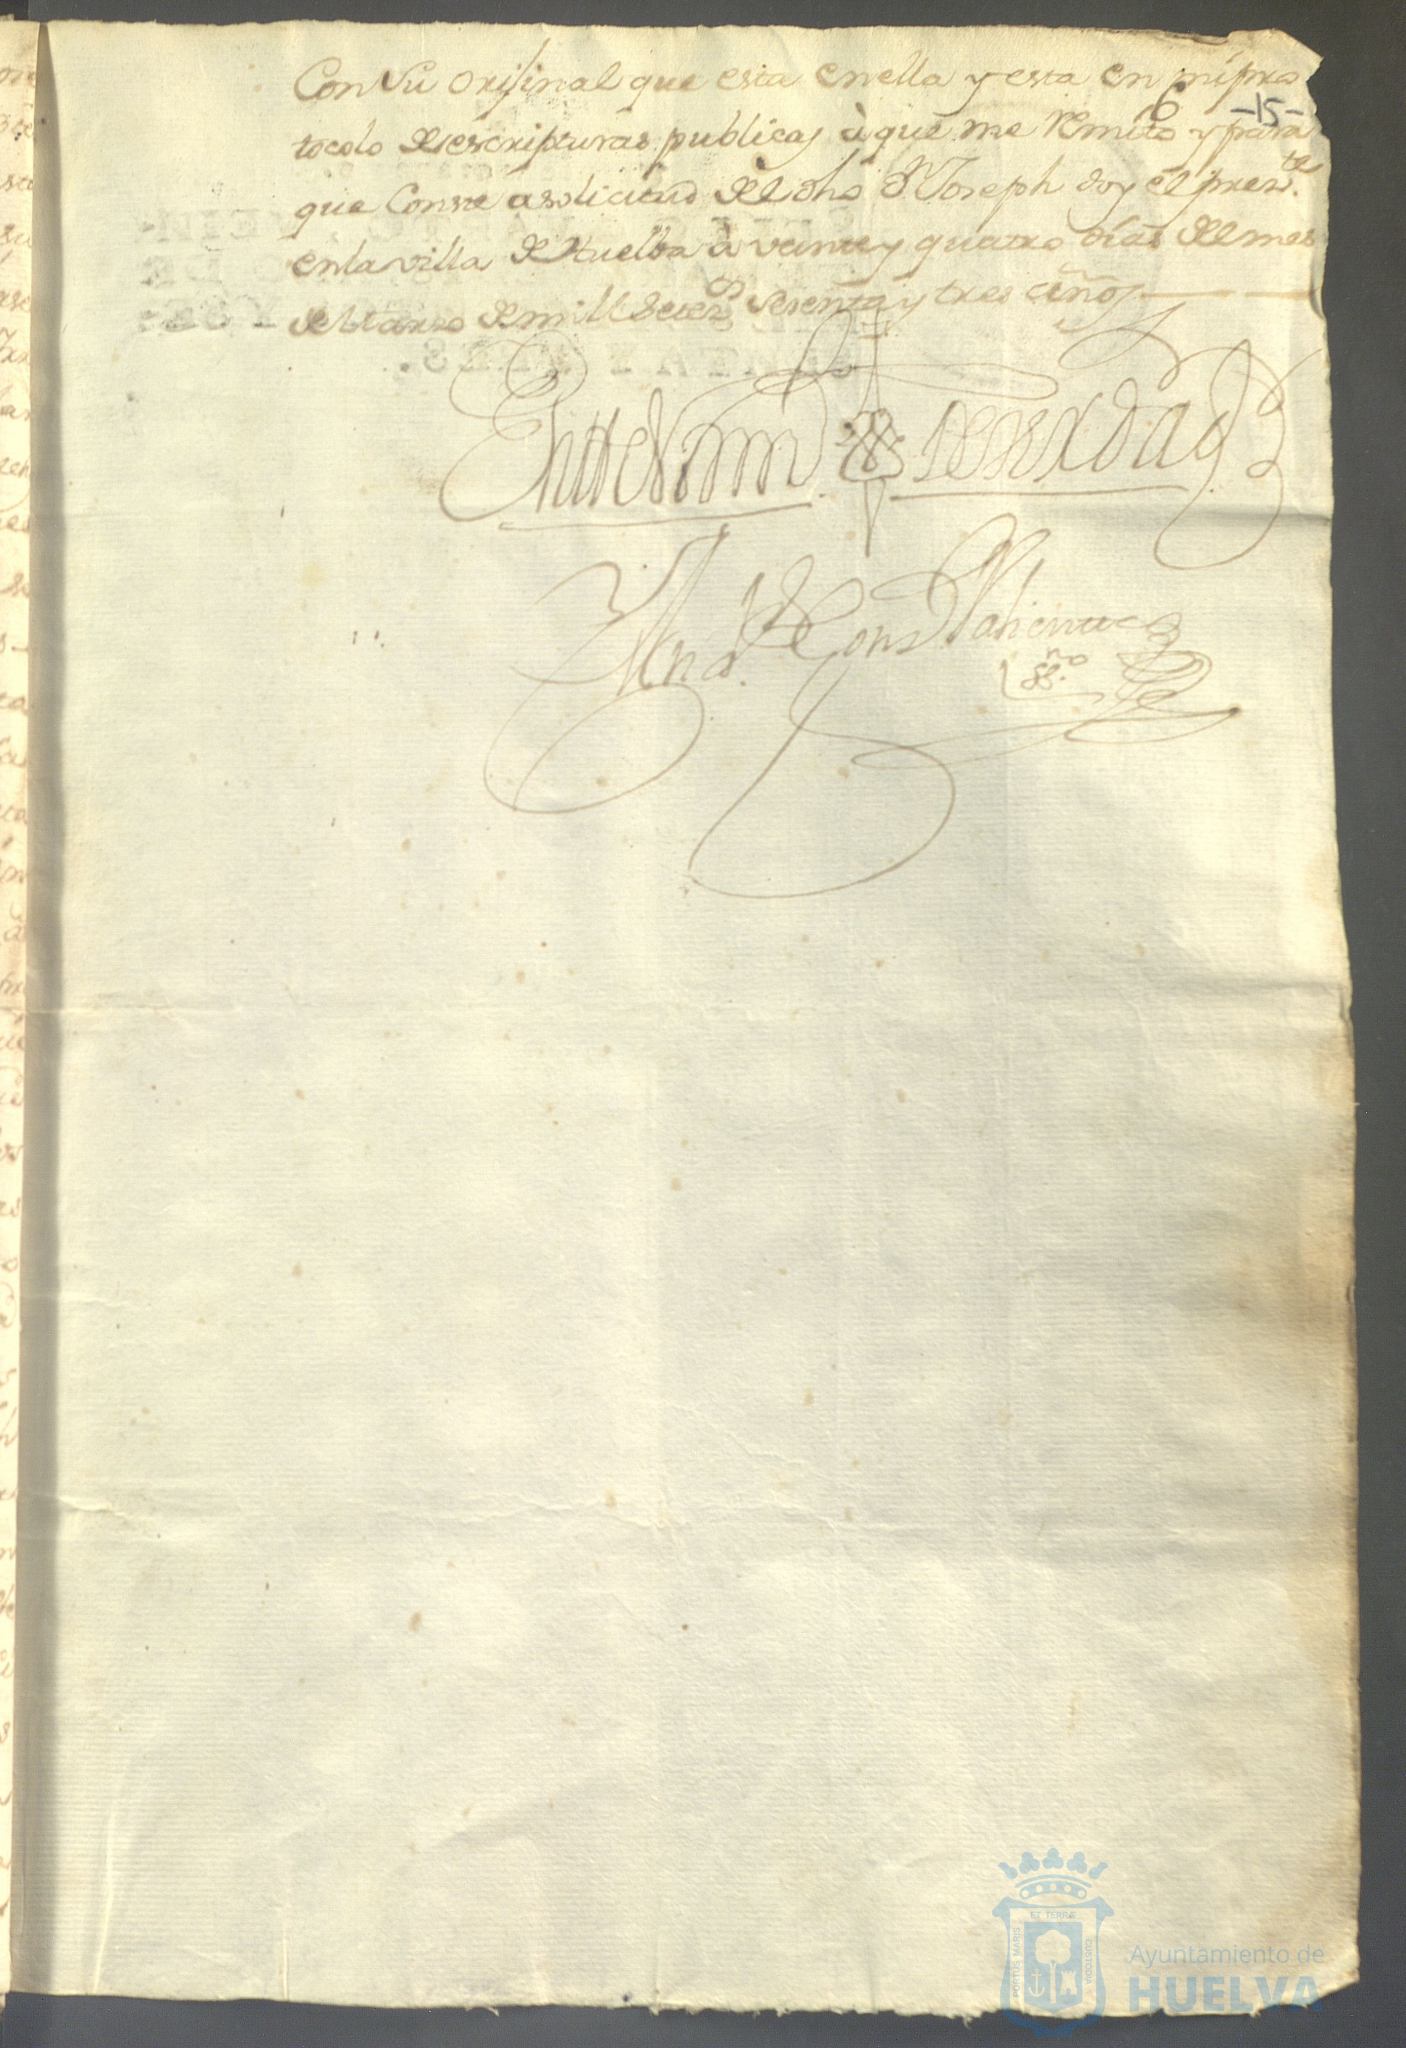 Con Su orijinal que esta en ella y esta en mi pro
6 -15-
tocolo de escripturas publicas à que me Remito y para
que Conste a solicitud del dho Dn Joseph doy el preste.
en la villa de Huelba à veinte y quatro dias del mes
de Marzo de mill Setecs Sesenta y tres años
En testim de verdad
Ssno
PORTUS MARIS
ET TERRÆ
CUSTODIA
Ayuntamiento de
HUELVA